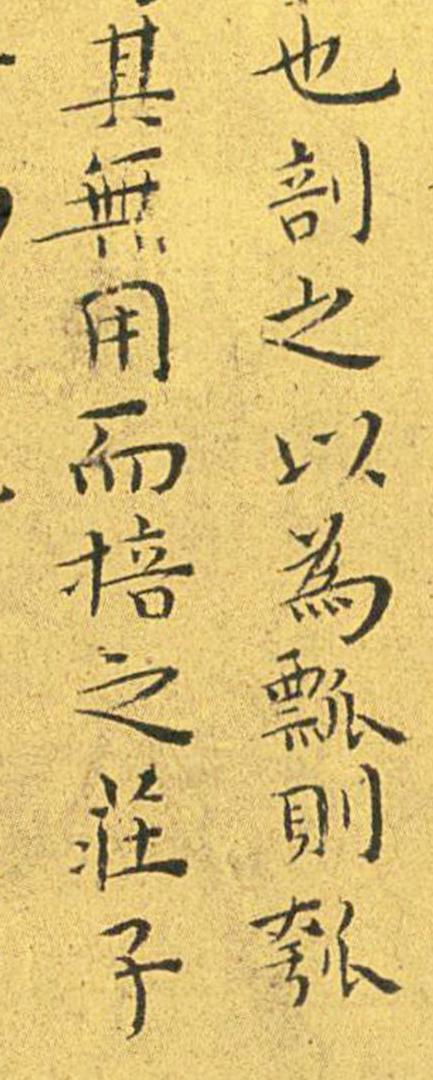 也剖之以為瓢則瓠
其無用而掊之莊子